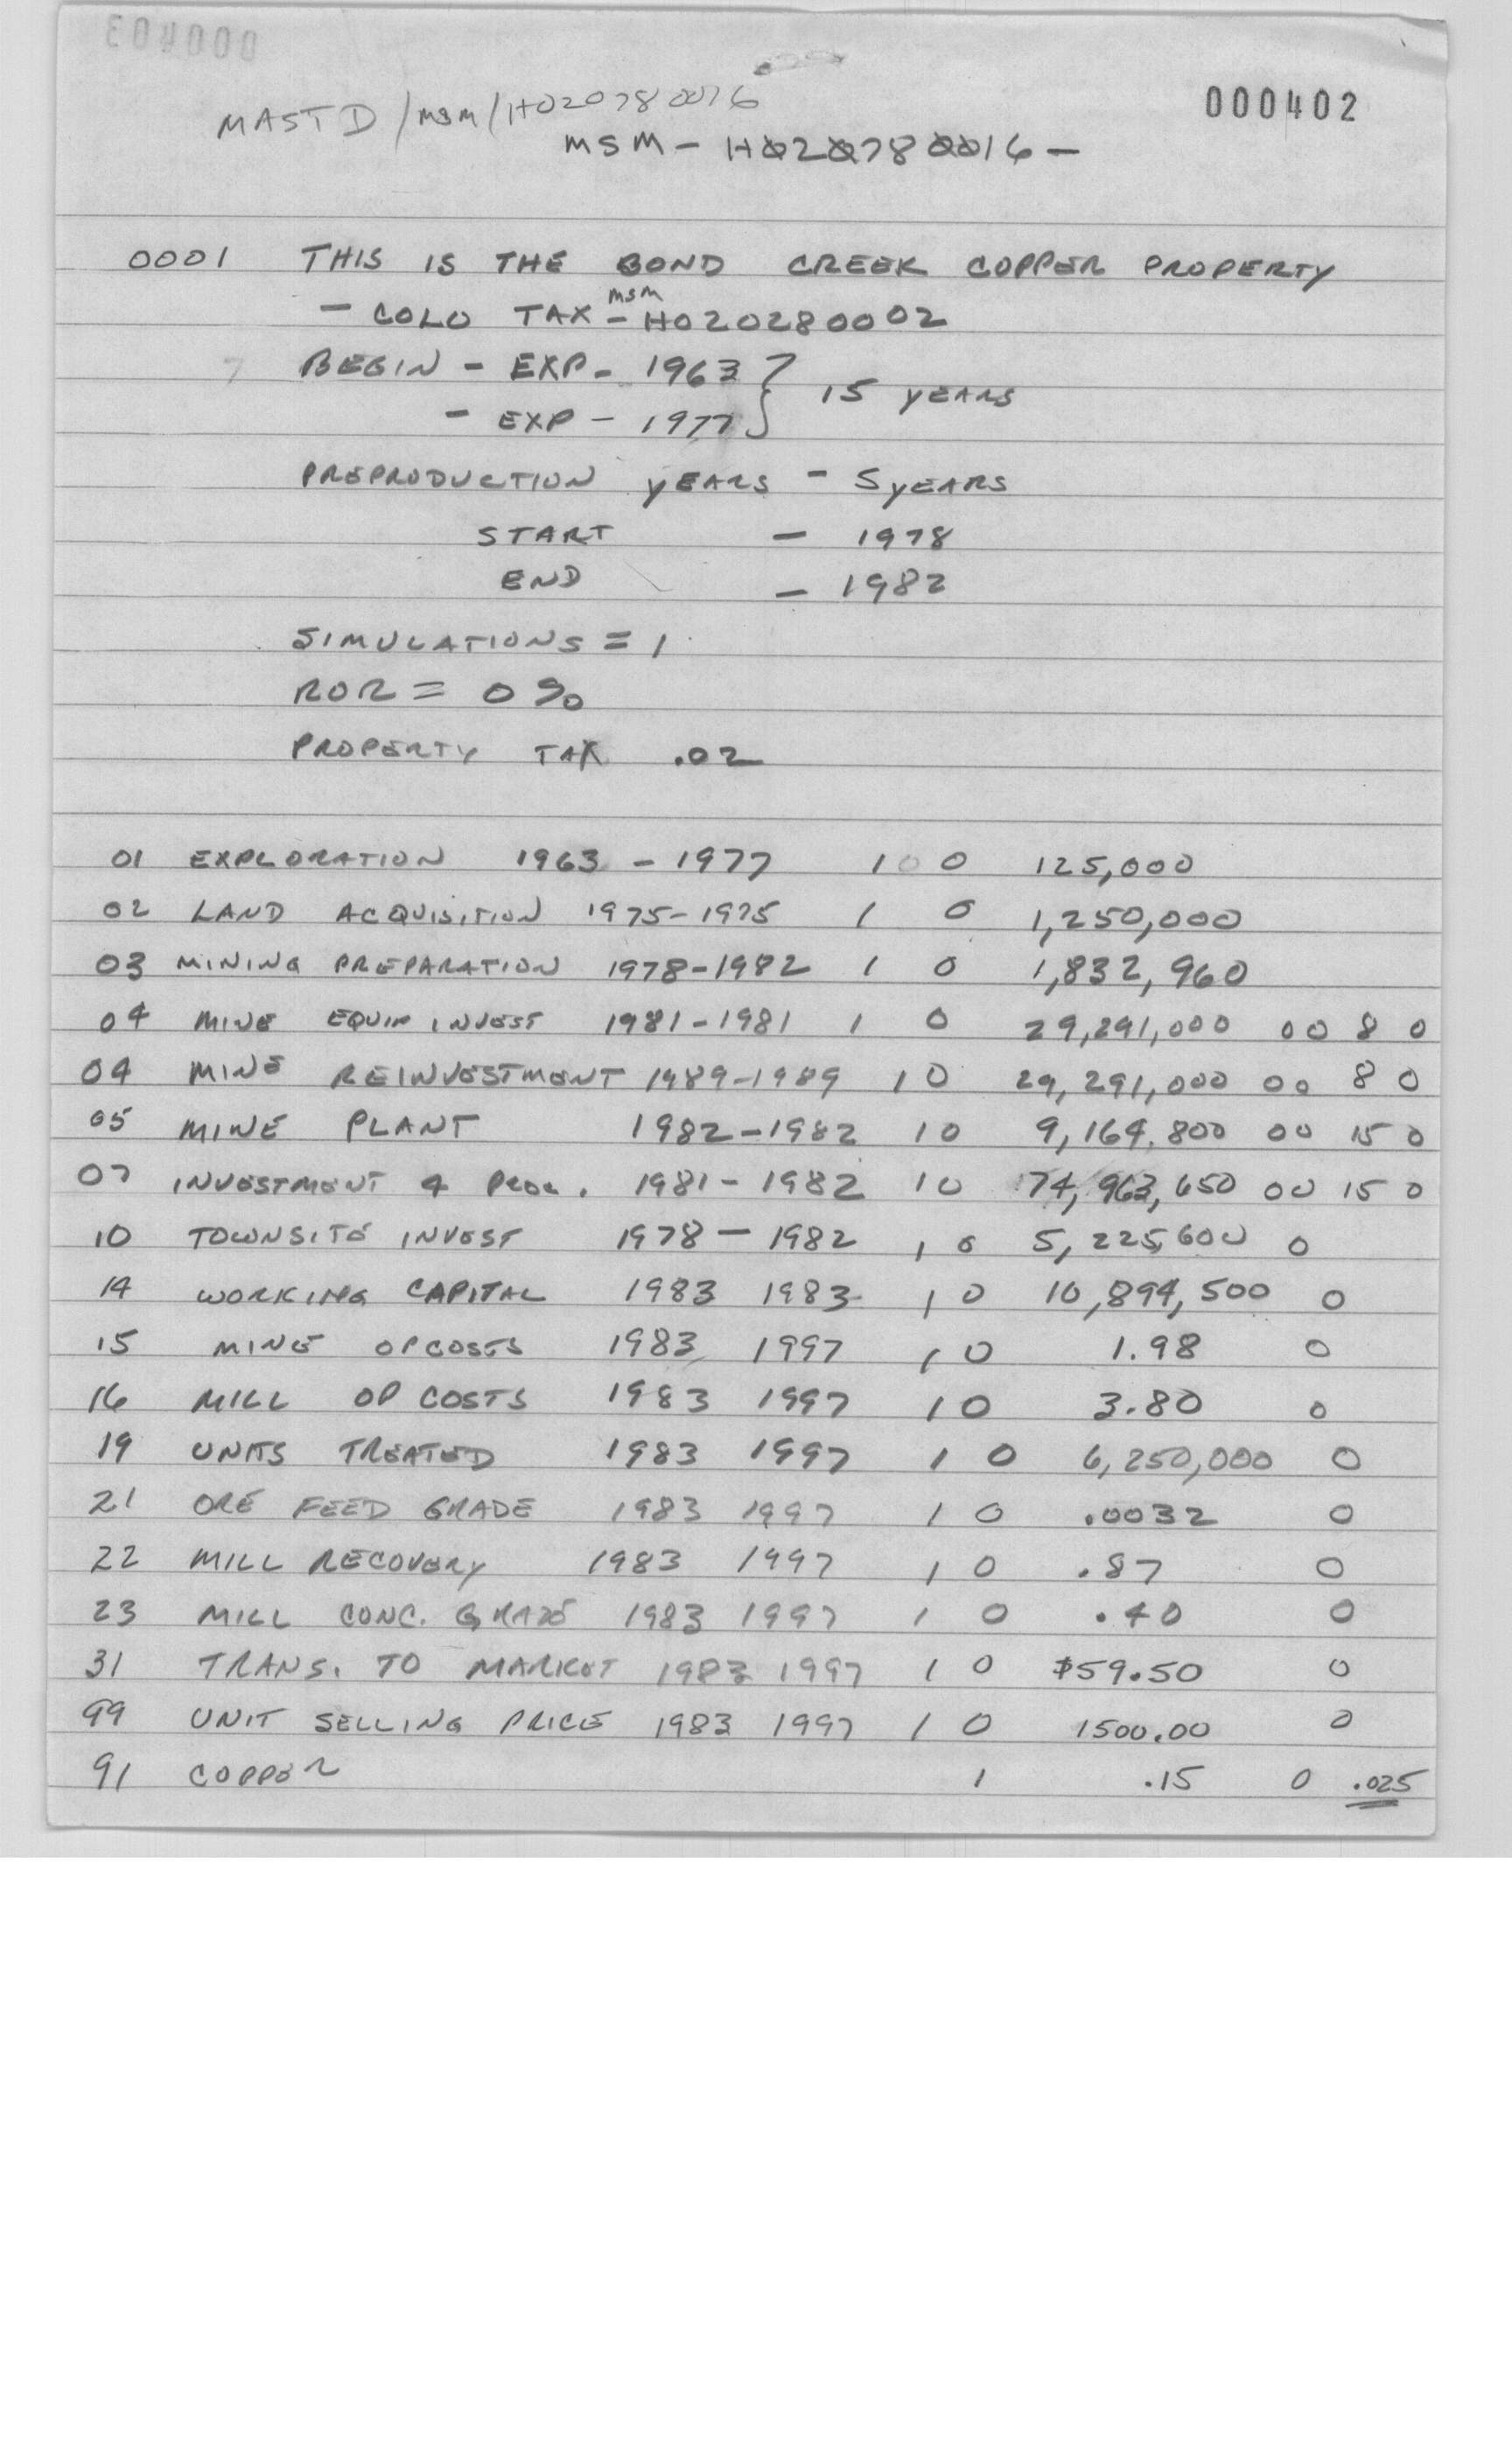 000403
MASTD/MSM/H020780016
000402
MSM - H020780016 -
0001 THIS IS THE BOND CREEK COPPER PROPERTY
- COLO TAX - MSM H020280002
BEGIN - EXP - 1963 } 15 YEARS
- EXP - 1977
PREPRODUCTION YEARS - 5 YEARS
START - 1978
END - 1982
SIMULATIONS = 1
ROR = 0%
PROPERTY TAX .02
01 EXPLORATION 1963 - 1977 1 0 0 125,000
02 LAND ACQUISITION 1975-1975 1 0 1,250,000
03 MINING PREPARATION 1978-1982 1 0 1,832,960
04 MINE EQUIP INVEST 1981-1981 1 0 29,291,000 00 8 0
04 MINE REINVESTMENT 1989-1989 1 0 29,291,000 00 8 0
05 MINE PLANT 1982-1982 1 0 9,164,800 00 15 0
07 INVESTMENT 4 PROC. 1981-1982 1 0 74,963,650 00 15 0
10 TOWNSITE INVEST 1978-1982 1 0 5,225,600 0
14 WORKING CAPITAL 1983 1983 1 0 10,894,500 0
15 MINE OPCOSTS 1983 1997 1 0 1.98 0
16 MILL OP COSTS 1983 1997 1 0 3.80 0
19 UNITS TREATED 1983 1997 1 0 6,250,000 0
21 ORE FEED GRADE 1983 1997 1 0 .0032 0
22 MILL RECOVERY 1983 1997 1 0 .87 0
23 MILL CONC. GRADE 1983 1997 1 0 .40 0
31 TRANS. TO MARKET 1983 1997 1 0 $59.50 0
99 UNIT SELLING PRICE 1983 1997 1 0 1500.00 0
91 COPPER 1 .15 0 .025